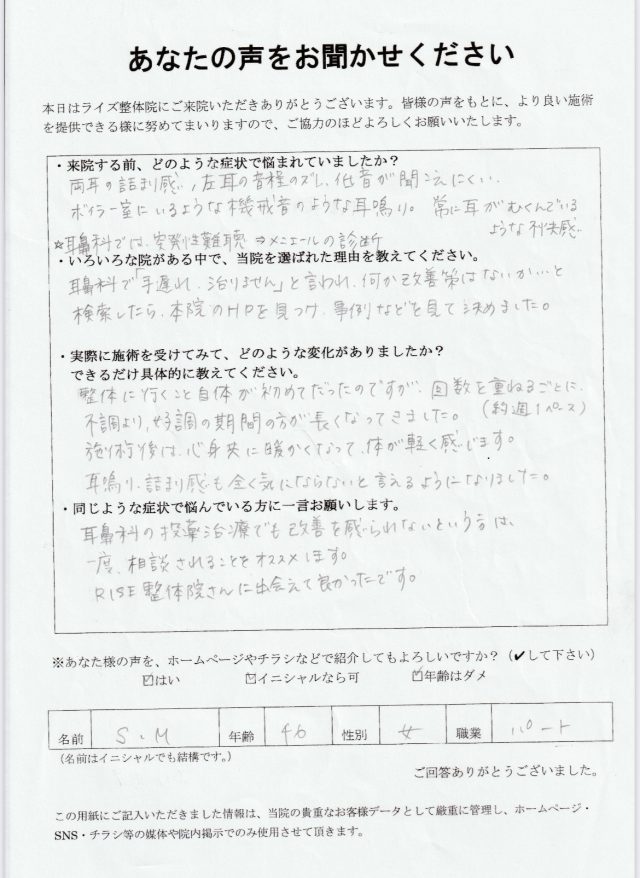 あなたの声をお聞かせください
本日はライズ整体院にご来院いただきありがとうございます。皆様の声をもとに、より良い施術
を提供できる様に努めてまいりますので、ご協力のほどよろしくお願いいたします。
・来院する前、どのような症状で悩まれていましたか？
両耳の詰まり感、左耳の音程のズレ、低音が聞こえにくい、
ボイラー室にいるような機械音のような耳鳴り。常に耳がむくんでいる
ような不快感
☆耳鼻科では、突発性難聴⇒メニエールの診断
・いろいろな院がある中で、当院を選ばれた理由を教えてください。
耳鼻科で「手遅れ、治りません」と言われ、何か改善策はないか…と
検索したら、本院のHPを見つけ、事例などを見て決めました。
・実際に施術を受けてみて、どのような変化がありましたか？
できるだけ具体的に教えてください。
整体に行くこと自体が初めてだったのですが、回数を重ねるごとに、
不調より、好調の期間の方が長くなってきました。（約週1ペース）
施術後は、心身共に暖かくなって、体が軽く感じます。
耳鳴り、詰まり感も全く気にならないと言えるようになりました。
・同じような症状で悩んでいる方に一言お願いします。
耳鼻科の投薬治療でも改善を感じられないという方は、
一度、相談されることをオススメします。
RISE整体院さんに出会えて良かったです。
※あなた様の声を、ホームページやチラシなどで紹介してもよろしいですか？（✔して下さい）
☑はい　☑イニシャルなら可　☑年齢はダメ
名前　S・M　年齢　46　性別　女　職業　パート
（名前はイニシャルでも結構です。）
ご回答ありがとうございました。
この用紙にご記入いただきました情報は、当院の貴重なお客様データとして厳重に管理し、ホームページ・
SNS・チラシ等の媒体や院内掲示でのみ使用させて頂きます。